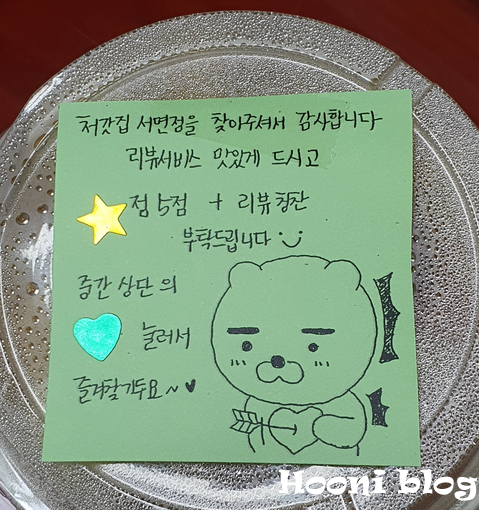 처갓집 서면점을 찾아주셔서 감사합니다
리뷰서비스 맛있게 드시고
점 5점 + 리뷰칭찬
부탁드립니다
중간 상단의
눌러서
즐겨찾기두요~♥
Hooni blog